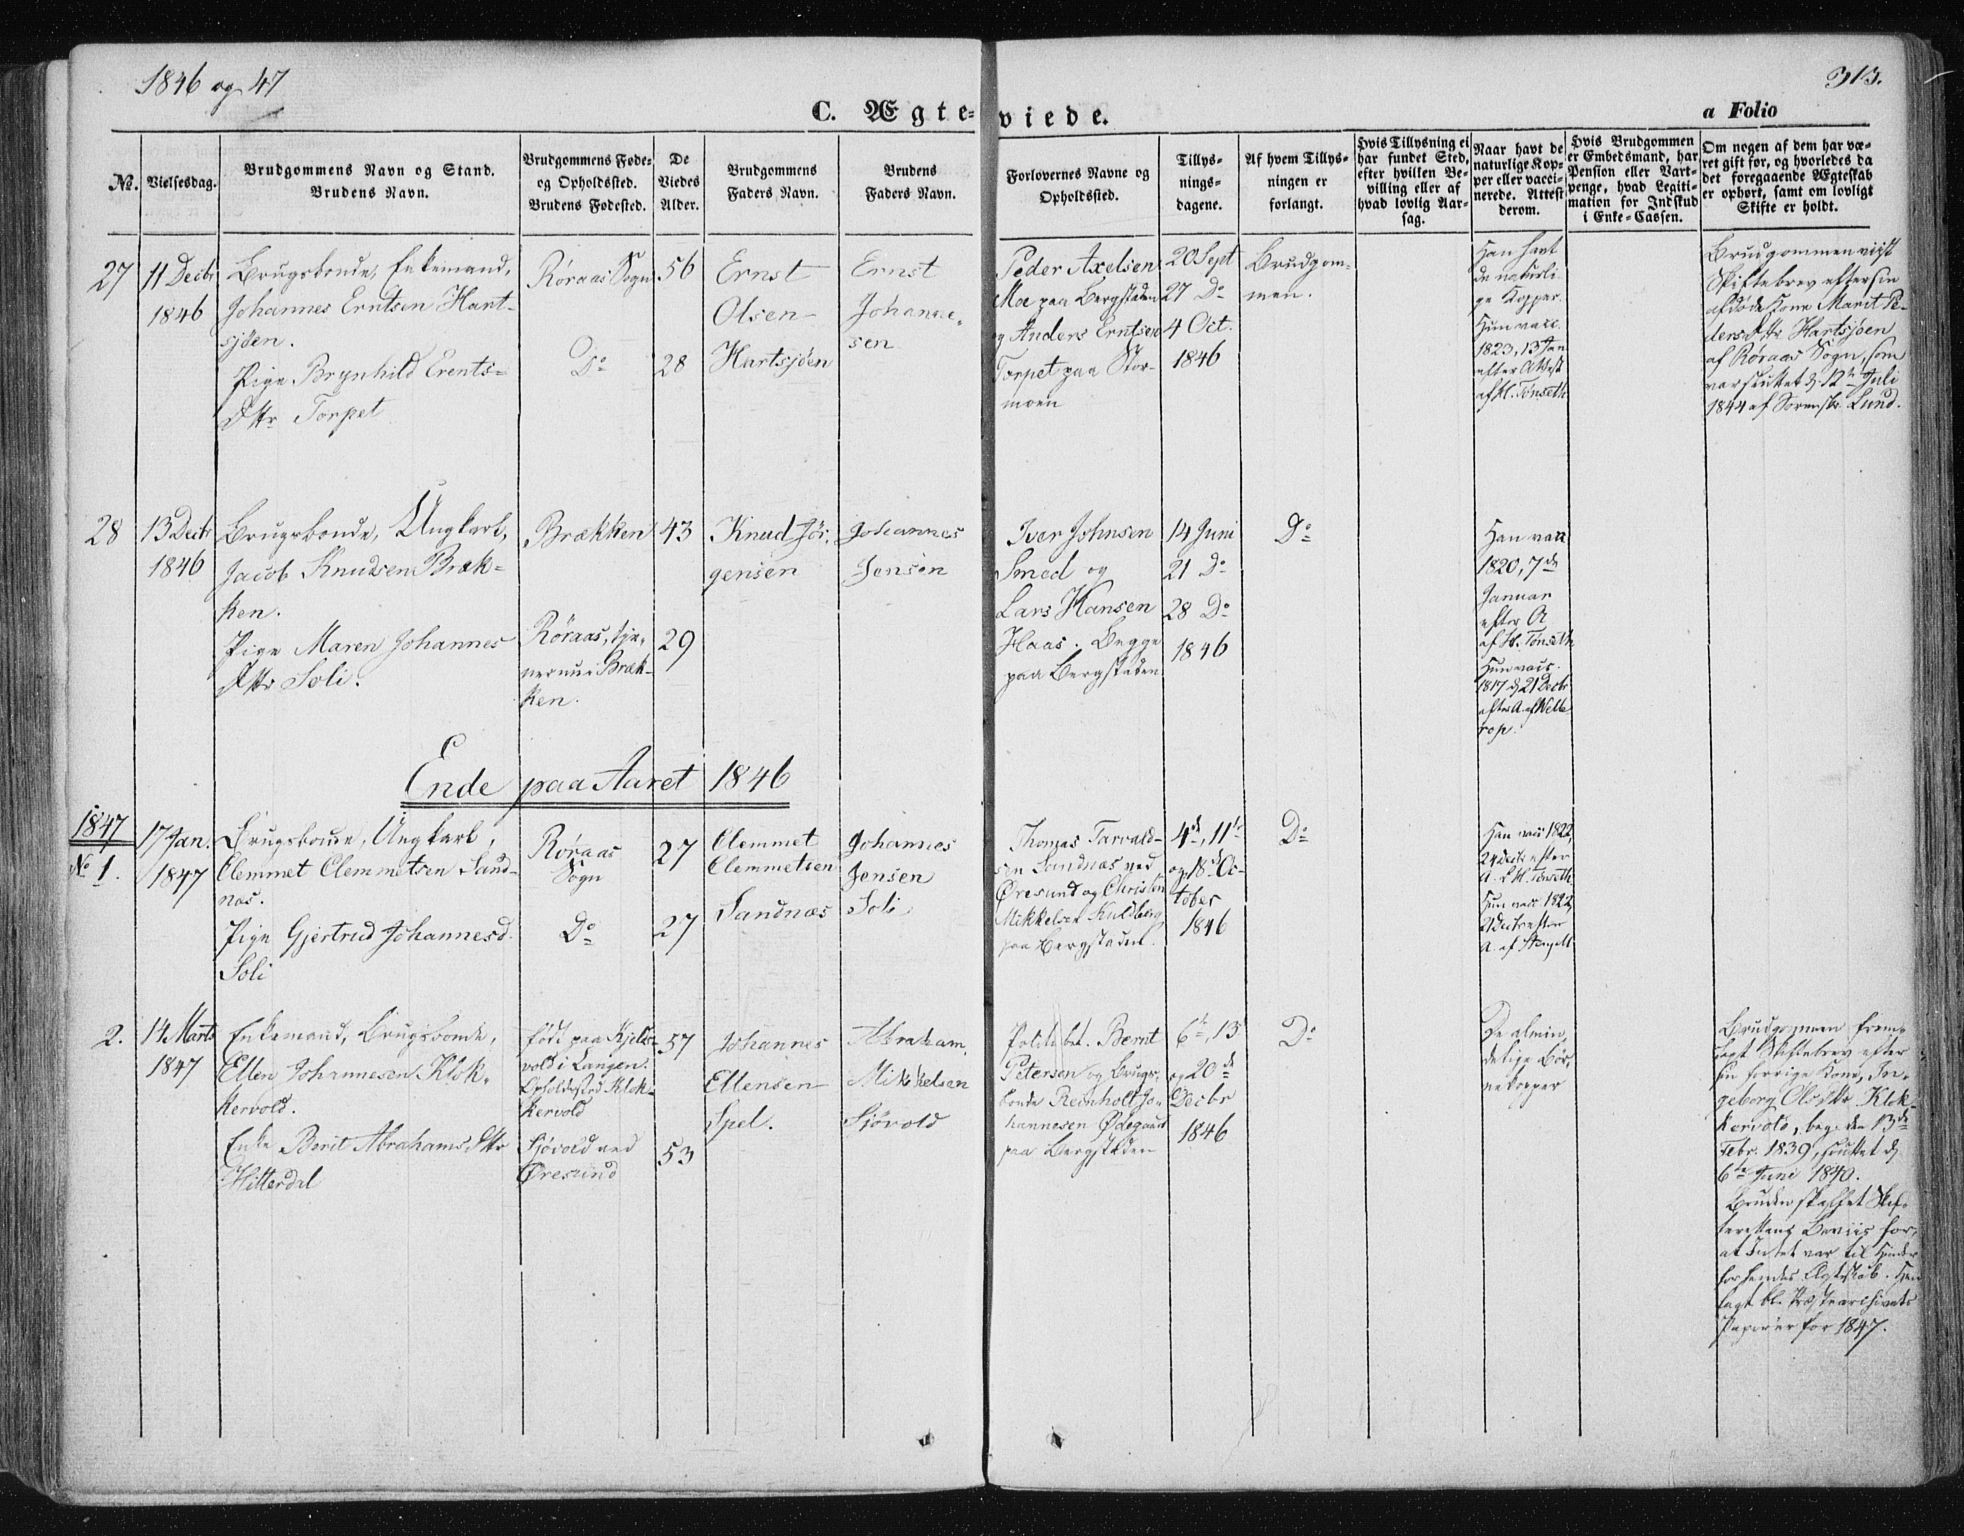 1846 og 47
313.
C. Ægteviede.
a Folio
No.
Vielsesdag.
Brudgommens Navn og Stand.
Brudens Navn.
Brudgommens Føde-
og Opholdssted.
Brudens Fødested.
De
Viedes
Alder.
Brudgommens
Faders Navn.
Brudens
Faders Navn.
Forlovernes Navne og
Opholdssted.
Tillys-
nings-
dagene.
Af hvem Tillys-
ningen er
forlangt.
Hvis Tillysning ei
har fundet Sted,
efter hvilken Be-
villing eller af
hvad lovlig Aar-
sag.
Naar havt de
naturlige Kop-
per eller vacci-
nerede. Attest
derom.
Hvis Brudgommen
er Embedsmand, har
Pension eller Vart-
penge, hvad Legiti-
mation for Indskud
i Enke-Cassen.
Om nogen af dem har væ-
ret gift før, og hvorledes da
det foregaaende Ægteskab
er ophørt, samt om lovligt
Skifte er holdt.
27
11 Decbr
1846
Brugsbonde, Enkemand,
Johannes Erntsen Hart-
sjøen.
Pige Brynhild Erents-
Dttr Torpet
Røraas Sogn
Do
56
28
Ernst
Olsen
Hartsjøen
Ernst
Johanne-
sen
Peder Axelsen
Moe paa Bergstaden
og Anders Erntsen
Torpet paa Stor-
moen
20 Sept
27 Do
4 Oct.
1846
Brudgom-
men.
Han havt
de naturli-
ge Kopper.
Hun vacc.
1823, 13 Jan
efter Attest
af Kl. Tønseth
Brudgommen viist
Skiftebrev efter sin
afdøde Kone Marit Pe-
dersDttr Hartsjøen
af Røraas Sogn, som
var sluttet d. 12te Juli
1844 af Sorenskr. Lund.
28
13 Decbr
1846
Brugsbonde, Ungkarl,
Jacob Knudsen Bræk-
ken.
Pige Maren Johannes
Dttr Soli.
Brækken
Røraas, tje-
ner nu i Bræk-
ken.
43
29
Knud Jør-
gensen
Johannes
Jensen
Iver Johnsen
Smed og
Lars Hansen
Haas. Begge
paa Bergstaden
14 Juni
21 Do
28 Do
1846
Do
Han vacc
1820, 7de
Januar
efter A
af Kl. Tønseth
Hun vacc.
1817 d. 21 Decbr
efter A. af Welle
rop.
Ende paa Aaret 1846
1847
No 1.
17 Jan.
1847
Brugsbonde, Ungkarl,
Clemmet Clemmetsen Sand-
næs.
Pige Gjertrud Johannesd.
Soli
Røraas
Sogn
Do
27
27
Clemmet
Clemmetsen
Sandnæs
Johannes
Jensen
Soli
Thomas Tarvald-
sen Sandnæs ved
Øresund og Christen
Mikkelsen Kuldberg
paa Bergstaden.
4de, 11te
og 18de Oc-
tober
1846
Do
Han vacc 1822,
24 Decbr efter
A. af Kl. Tønseth
Hun vacc. 1822,
2 Decbr efter
A. af Stengell
2.
14 Marts
1847
Enkemand, Brugsbonde,
Ellen Johannesen Klok-
kervold.
Enke Berit Abrahams Dttr
Hitterdal
født paa Kjels-
vold i Langen.
Opholdssted Klok-
kervold
Sjøvold ved
Øresund
57
53
Johannes
Ellensen
Spel.
Abraham
Mikkelsen
Sjøvold
Politibet. Bernt
Petersen og Brugs-
bonde Reinholt Jo-
hannesen Ødegaard
paa Bergstaden
6te, 13de
og 20de
Decbr
1846
Do
De almin-
delige Bør-
nekopper
Brudgommen frem-
lagt Skiftebrev efter
sin forrige Kone, In-
geborg OlsDttr Klok-
kervold, beg. den 13de
Febr. 1839, sluttet d.
6te Juni 1840.
Bruden skaffet Skif-
terettens Beviis for,
at Intet var til Hinder
for hendes Ægteskab. Hen
lagt bl. Præstearchivets
Papirer for 1847.